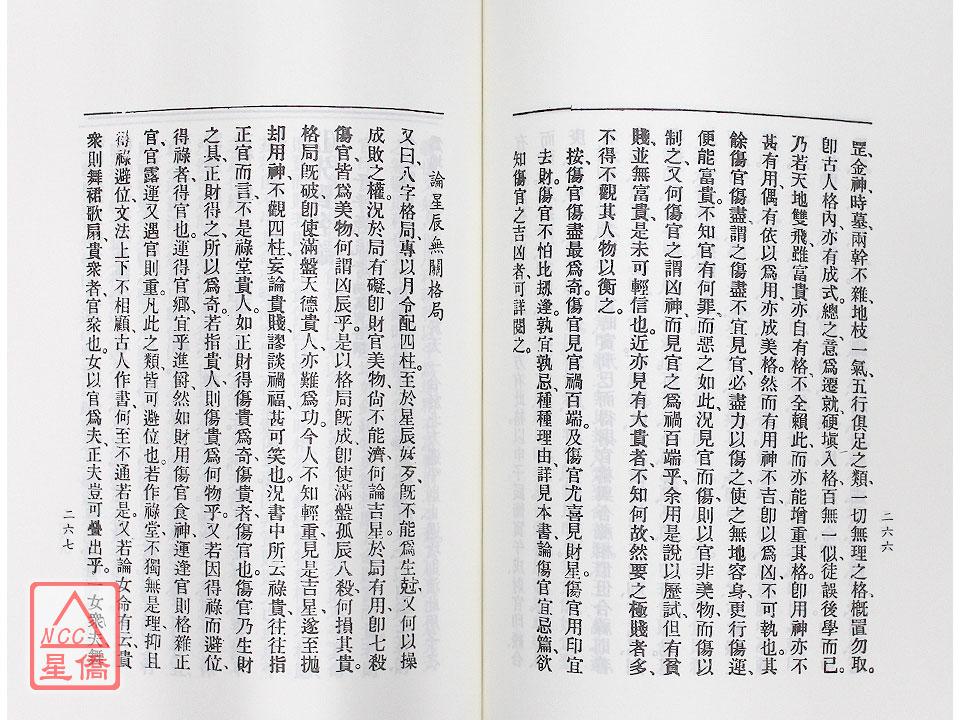 罡、金神、時墓、兩幹不雜、地枝一氣、五行俱足之類、一切無理之格、概置勿取。
卽古人格內、亦有成式、總之意爲遷就、硬塡入格、百無一似、徒誤後學而已。
乃若天地雙飛、雖富貴亦自有格、不全賴此、而亦能增重其格、卽用神亦不
甚有用、偶有依以爲用、亦成美格、然而有用神不吉、卽以爲凶、不可執也、其
餘傷官傷盡、謂之傷盡、不宜見官、必盡力以傷之、使之無地容身、更行傷運、
便能富貴、不知官有何罪、而惡之如此、況見官而傷、則以官非美物、而傷以
制之、又何傷官之謂凶神、而見官之爲禍百端乎、余用是說以歷試、但有貧
賤、並無富貴、是未可輕信也、近亦見有大貴者、不知何故、然要之極賤者多、
不得不觀其人物以衡之。
按、傷官傷盡最爲奇、傷官見官禍百端、及傷官尤喜見財星、傷官用印宜
去財、傷官不怕比刼逢、孰宜孰忌、種種理由、詳見本書論傷官宜忌篇、欲
知傷官之吉凶者、可詳閱之。
二六六
論星辰無關格局
又曰、八字格局、專以月令配四柱、至於星辰好歹、旣不能爲生尅、又何以操
成敗之權、況於局有礙、卽財官美物、尙不能濟、何論吉星、於局有用、卽七殺
傷官、皆爲美物、何謂凶辰乎、是以格局旣成、卽使滿盤孤辰八殺、何損其貴、
格局旣破、卽使滿盤天德貴人、亦難爲功、今人不知輕重、見是吉星、遂至拋
却用神、不觀四柱、妄論貴賤、謬談禍福、甚可笑也。況書中所云祿貴、往往指
正官而言、不是祿堂貴人。如正財得傷貴爲奇、傷貴者、傷官也。傷官乃生財
之具、正財得之、所以爲奇。若指貴人、則傷貴爲何物乎。又若因得祿而避位、
得祿者、得官也。運得官鄉、宜乎進爵、然如財用傷官食神、運逢官則格雜、正
官官露、運又遇官則重。凡此之類、皆可避位也。若作祿堂、不獨無是理、抑且
得祿避位、文法上下不相顧、古人作書、何至不通若是。又若論女命、有云貴
衆則舞裙歌扇、貴衆者、官衆也。女以官爲夫、正夫豈可疊出乎。一女衆夫、舞
二六七
NCC
星僑